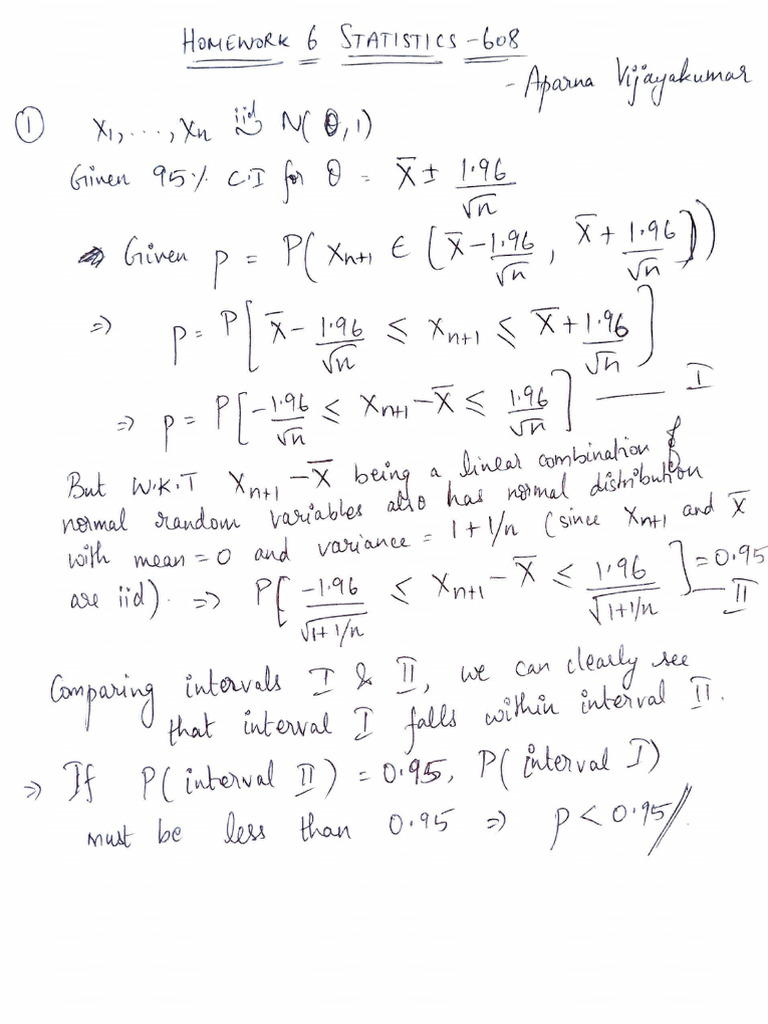 HOMEWORK 6 STATISTICS - 608
- Aparna Vijayakumar
① X₁, ..., Xₙ iid ~ N(θ, 1)
Given 95% C.I for θ = X̄ ± 1.96/√n
Given p = P(Xₙ₊₁ ∈ (X̄ - 1.96/√n, X̄ + 1.96/√n))
⇒ p = P[X̄ - 1.96/√n ≤ Xₙ₊₁ ≤ X̄ + 1.96/√n]
⇒ p = P[-1.96/√n ≤ Xₙ₊₁ - X̄ ≤ 1.96/√n] — I
But W.K.T Xₙ₊₁ - X̄ being a linear combination of
normal random variables also has normal distribution
with mean = 0 and variance = 1 + 1/n (since Xₙ₊₁ and X̄
are iid). ⇒ P[-1.96/√(1+1/n) ≤ Xₙ₊₁ - X̄ ≤ 1.96/√(1+1/n)] = 0.95 — II
Comparing intervals I & II, we can clearly see
that interval I falls within interval II.
⇒ If P(interval II) = 0.95, P(interval I)
must be less than 0.95 ⇒ p < 0.95//.